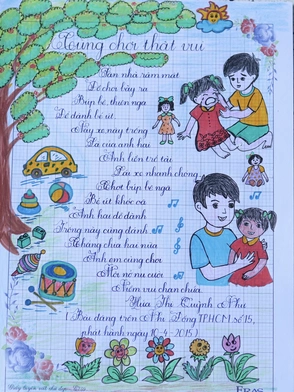 Cùng chơi thật vui
Sàn nhà râm mát
Đồ chơi bày ra
Búp bê, thiên nga
Để dành bé út,
Này xe này trống
Là của anh hai
Anh hiển trổ tài
Lái xe nhanh chóng
Chợt búp bê ngã
Bé út khóc oà
Anh hai dỗ dành
Trống này cũng dành
Chẳng chia hai nữa
Anh em cùng chơi
Môi nở nụ cười
Niềm vui chan chứa.
Hứa Thị Quỳnh Như
(Bài đăng trên Nhi Đồng TP.HCM số 15
phát hành ngày 10-4-2015)